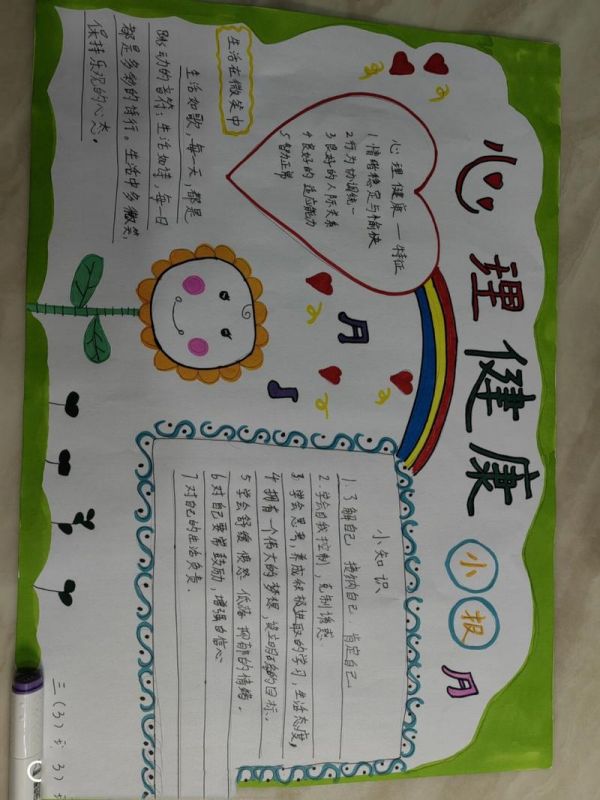 心理健康小报
生活在微笑中
生活如歌,每一天,都是
跳动的音符;生活如诗,每一日
都是多彩的诗行。生活中多微笑,
保持乐观的心态。
心理健康一特征
1情绪稳定与愉快
2行为协调统一
3良好的人际关系
4良好的适应能力
5智力正常
小知识
1.了解自己,接纳自己.肯定自己
2.学会自我控制,克制诱惑
3.学会思考,养成积极进取的学习,生活态度,
4 拥有一个伟大的梦想,设立明确的目标.
5 学会舒缓 愤怒 低落 抑郁的情绪.
6 对自己要常鼓励,增强自信心
7 对自己的生活负责.
三(3)